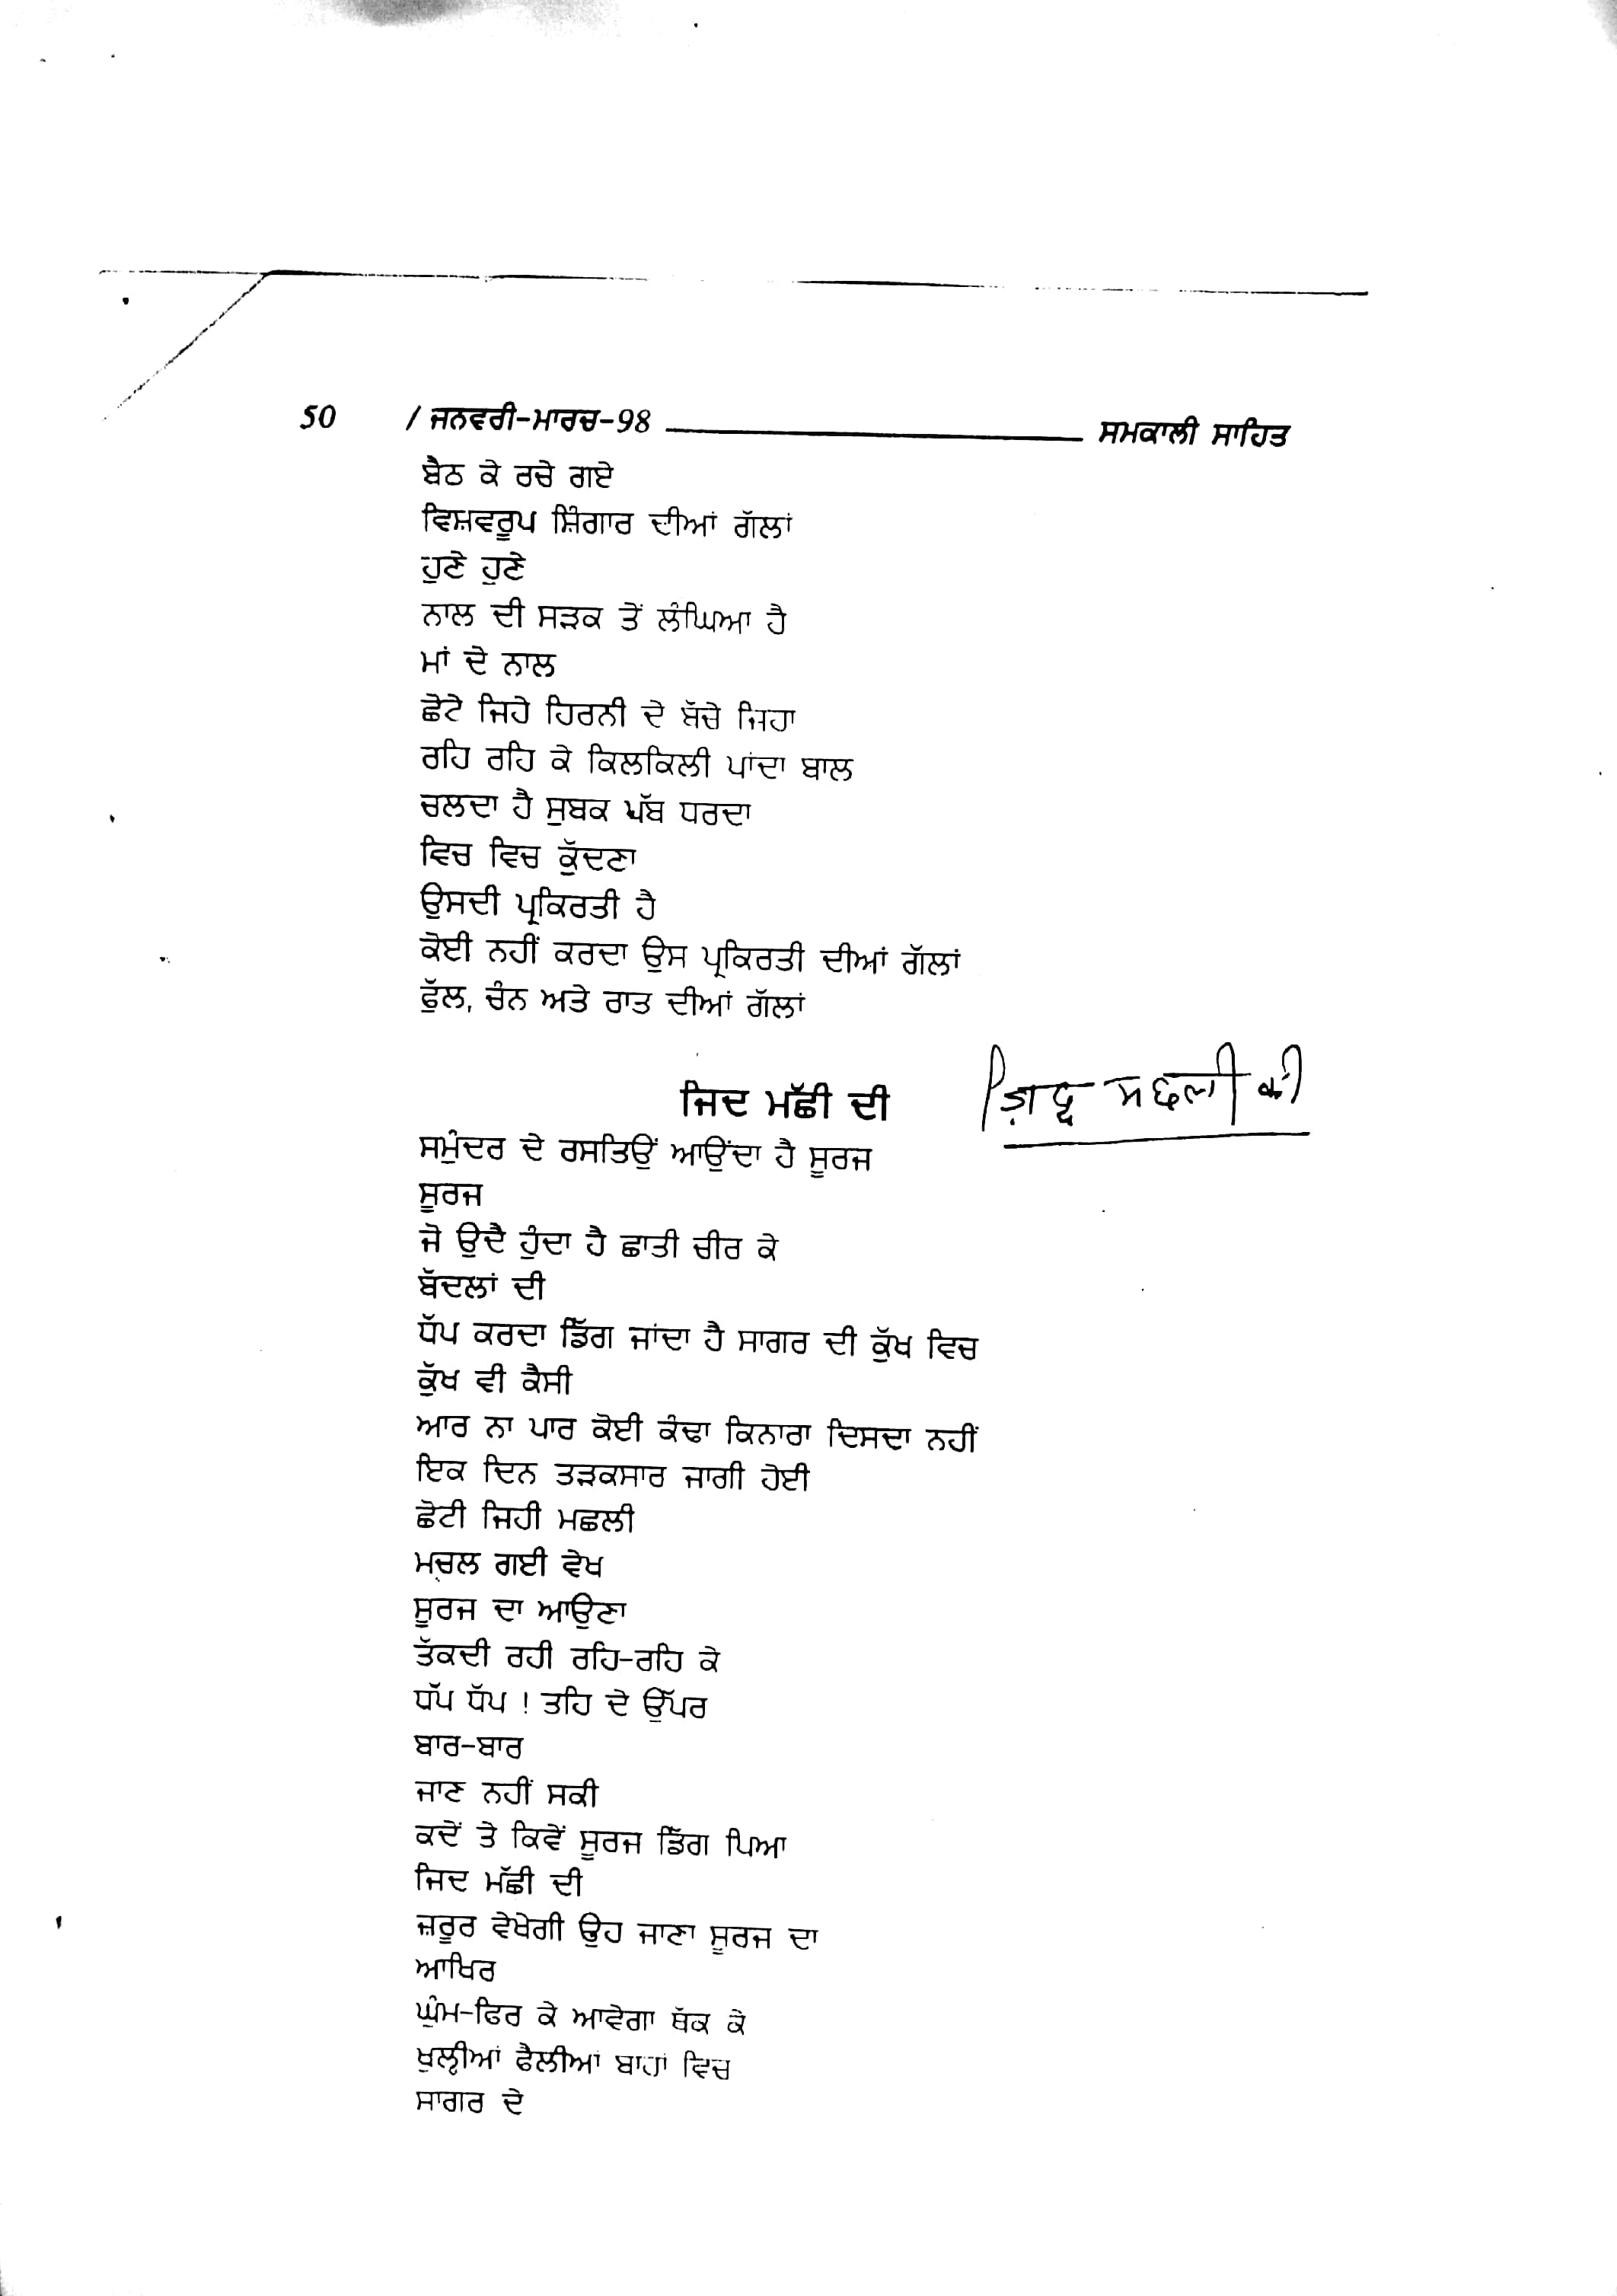 50 / ਜਨਵਰੀ-ਮਾਰਚ-98 ਸਮਕਾਲੀ ਸਾਹਿਤ
ਬੈਠ ਕੇ ਰਚੇ ਗਏ
ਵਿਸ਼ਵਰੂਪ ਸ਼ਿੰਗਾਰ ਦੀਆਂ ਗੱਲਾਂ
ਹੁਣੇ ਹੁਣੇ
ਨਾਲ ਦੀ ਸੜਕ ਤੋਂ ਲੰਘਿਆ ਹੈ
ਮਾਂ ਦੇ ਨਾਲ
ਛੋਟੇ ਜਿਹੇ ਹਿਰਨੀ ਦੇ ਬੱਚੇ ਜਿਹਾ
ਰਹਿ ਰਹਿ ਕੇ ਕਿਲਕਿਲੀ ਪਾਂਦਾ ਬਾਲ
ਚਲਦਾ ਹੈ ਸੁਬਕ ਪੱਬ ਧਰਦਾ
ਵਿਚ ਵਿਚ ਕੁੱਦਣਾ
ਉਸਦੀ ਪ੍ਰਕਿਰਤੀ ਹੈ
ਕੋਈ ਨਹੀਂ ਕਰਦਾ ਉਸ ਪ੍ਰਕਿਰਤੀ ਦੀਆਂ ਗੱਲਾਂ
ਫੁੱਲ, ਚੰਨ ਅਤੇ ਰਾਤ ਦੀਆਂ ਗੱਲਾਂ
ਜਿਦ ਮੱਛੀ ਦੀ
मछली की
ਸਮੁੰਦਰ ਦੇ ਰਸਤਿਉਂ ਆਉਂਦਾ ਹੈ ਸੂਰਜ
ਸੂਰਜ
ਜੋ ਉਦੈ ਹੁੰਦਾ ਹੈ ਛਾਤੀ ਚੀਰ ਕੇ
ਬੱਦਲਾਂ ਦੀ
ਧੱਪ ਕਰਦਾ ਡਿੱਗ ਜਾਂਦਾ ਹੈ ਸਾਗਰ ਦੀ ਕੁੱਖ ਵਿਚ
ਕੁੱਖ ਵੀ ਕੈਸੀ
ਆਰ ਨਾ ਪਾਰ ਕੋਈ ਕੰਢਾ ਕਿਨਾਰਾ ਦਿਸਦਾ ਨਹੀਂ
ਇਕ ਦਿਨ ਤੜਕਸਾਰ ਜਾਗੀ ਹੋਈ
ਛੋਟੀ ਜਿਹੀ ਮਛਲੀ
ਮਚਲ ਗਈ ਵੇਖ
ਸੂਰਜ ਦਾ ਆਉਣਾ
ਤੱਕਦੀ ਰਹੀ ਰਹਿ-ਰਹਿ ਕੇ
ਧੱਪ ਧੱਪ ! ਤਹਿ ਦੇ ਉੱਪਰ
ਬਾਰ-ਬਾਰ
ਜਾਣ ਨਹੀਂ ਸਕੀ
ਕਦੋਂ ਤੇ ਕਿਵੇਂ ਸੂਰਜ ਡਿੱਗ ਪਿਆ
ਜਿਦ ਮੱਛੀ ਦੀ
ਜ਼ਰੂਰ ਵੇਖੇਗੀ ਉਹ ਜਾਣਾ ਸੂਰਜ ਦਾ
ਆਖਿਰ
ਘੁੰਮ-ਫਿਰ ਕੇ ਆਵੇਗਾ ਥੱਕ ਕੇ
ਖੁਲ੍ਹੀਆਂ ਫੈਲੀਆਂ ਬਾਹਾਂ ਵਿਚ
ਸਾਗਰ ਦੇ